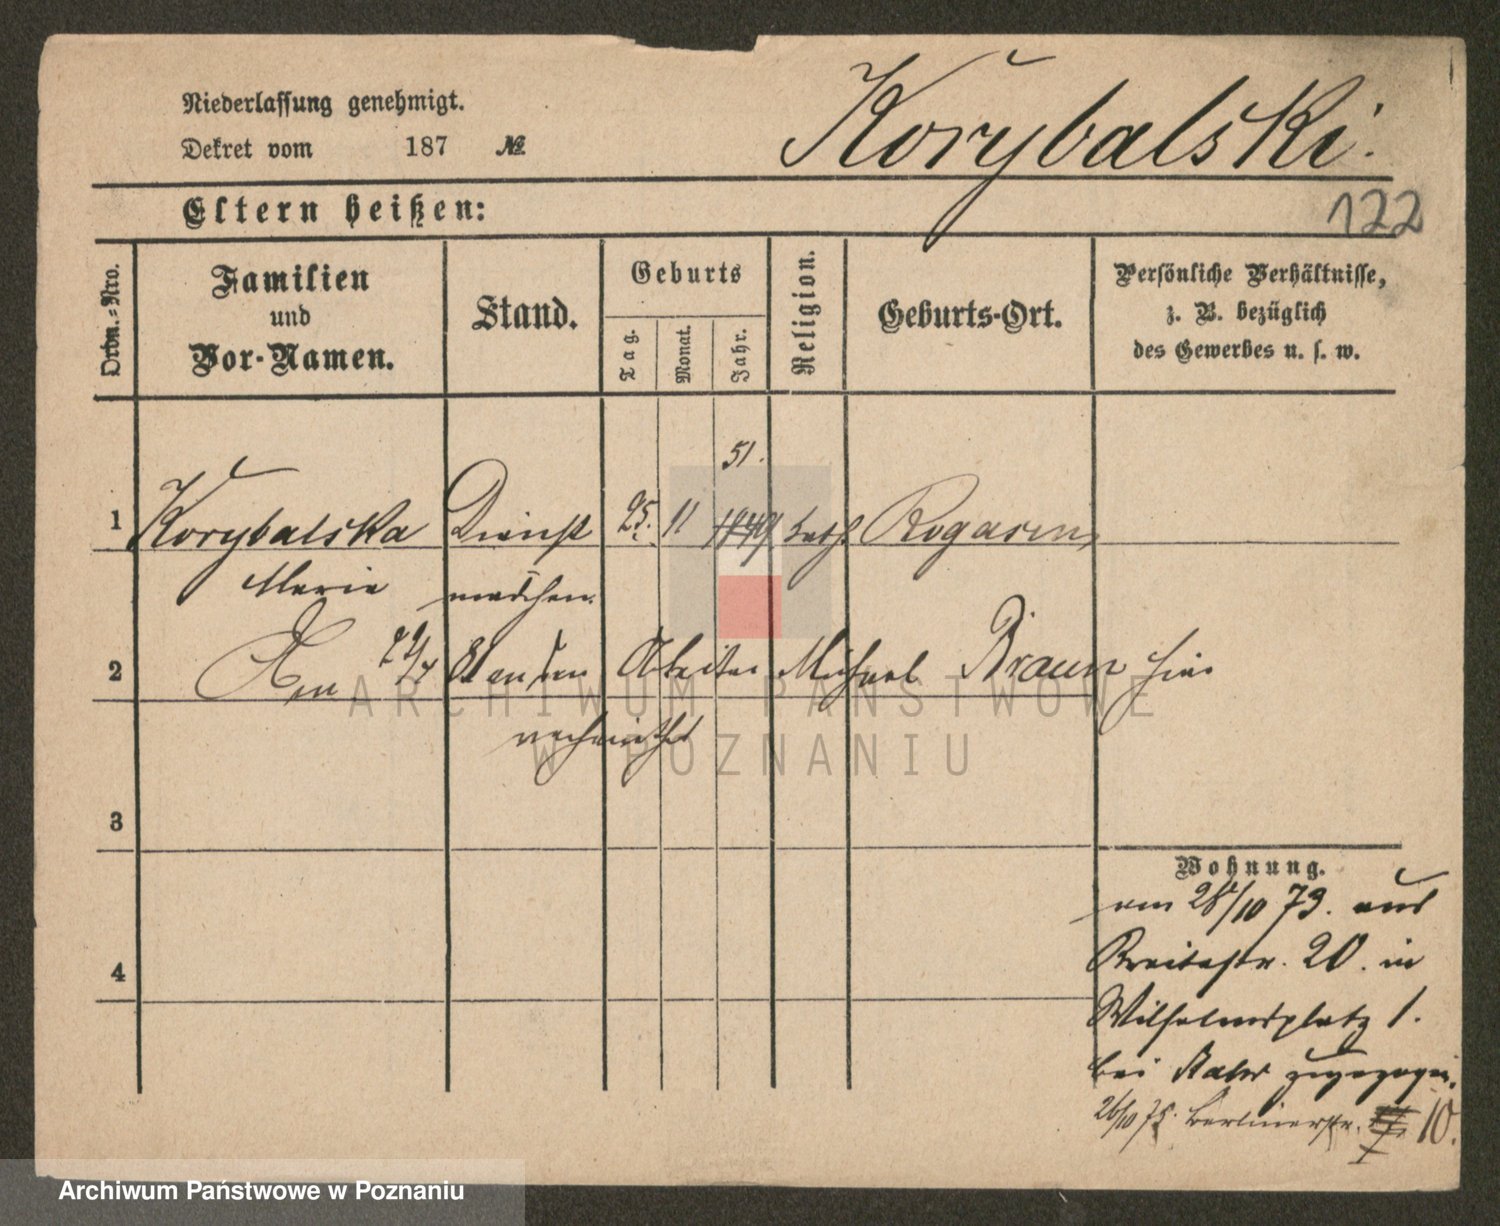 Niederlassung genehmigt.
Dekret vom 187 №
Korybalski.
122
Eltern heißen:
Ordn.-Nro.
Familien
und
Vor-Namen.
Stand.
Geburts
Tag.
Monat.
Jahr.
Religion.
Geburts-Ort.
Persönliche Verhältnisse,
z. B. bezüglich
des Gewerbes u. s. w.
51.
1 Korybalska Dienst 25. 11 1849 kath Rogasen
Marie mädchen.
2 Am Arbeiter Michael Braun hier
verheirathet
3
4
Wohnung.
am 28/10 73. aus
Breitestr. 20. in
Wilhelmsplatz 1.
bei zugezogen.
26/10 75. Berlinerstr. 10.
ARCHIWUM PAŃSTWOWE
W POZNANIU
Archiwum Państwowe w Poznaniu